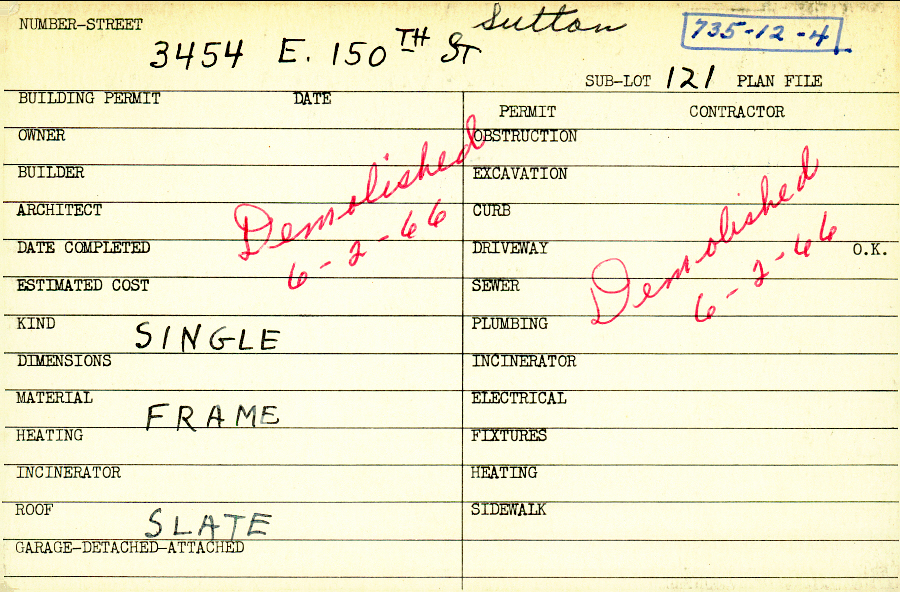 NUMBER-STREET Sutton 735-12-4
3454 E. 150TH ST
SUB-LOT 121 PLAN FILE
BUILDING PERMIT DATE
PERMIT CONTRACTOR
OWNER
OBSTRUCTION
BUILDER
EXCAVATION
ARCHITECT
CURB
DATE COMPLETED
DRIVEWAY O.K.
ESTIMATED COST
SEWER
Demolished
6-2-66
Demolished
6-2-66
KIND SINGLE
PLUMBING
DIMENSIONS
INCINERATOR
MATERIAL FRAME
ELECTRICAL
HEATING
FIXTURES
INCINERATOR
HEATING
ROOF SLATE
SIDEWALK
GARAGE-DETACHED-ATTACHED